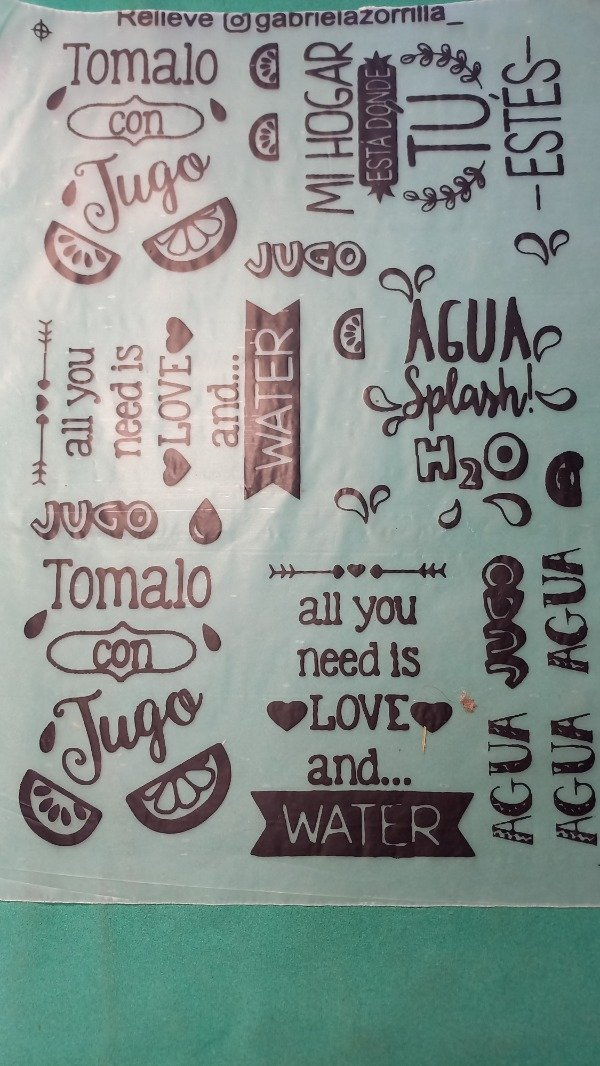 Relieve @gabrielazorrilla_
Tomalo
con
Jugo
MI HOGAR
ESTÁ DONDE
TÚ
-ESTÉS-
JUGO
all you
need is
LOVE
and...
WATER
AGUA
Splash!
H2O
JUGO
Tomalo
con
Jugo
all you
need is
LOVE
and...
WATER
JUGO
AGUA
AGUA
AGUA